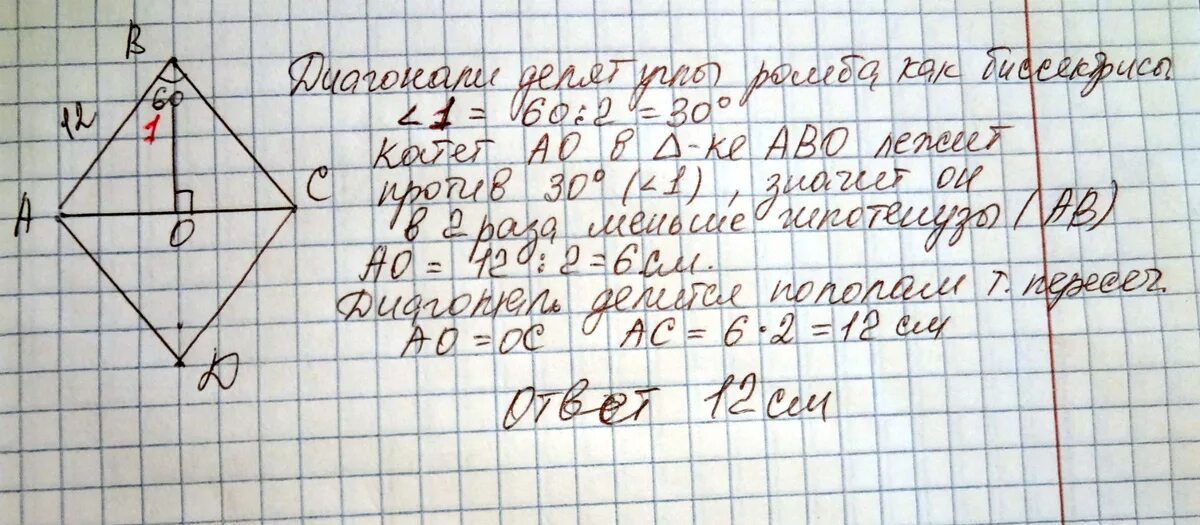 B
Диагонали делят углы ромба как биссектрисы
12
60
1
<1 = 60:2 = 30°
Катет AO в Δ-ке ABO лежит
против 30° (<1), значит он
A
O
C
в 2 раза меньше гипотенузы (AB)
AO = 12:2=6см.
Диагональ делится пополам т. пересеч.
AO = OC AC = 6·2=12 см
D
Ответ 12см